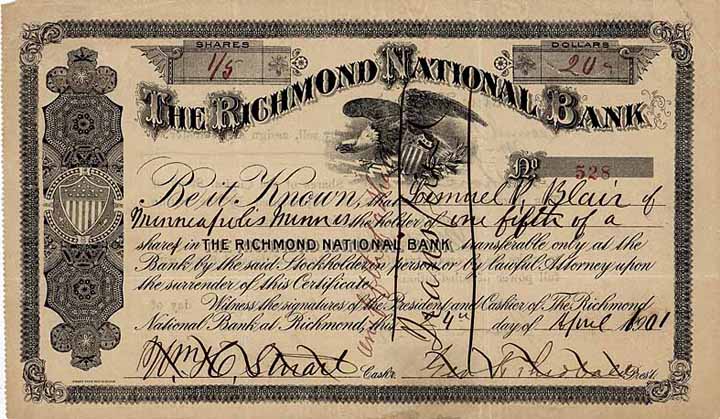 SHARES DOLLARS
1/5 20
THE RICHMOND NATIONAL BANK
No 528
Be it Known, that Lemuel P. Blair of
Minneapolis Minn is the holder of one fifth of a
shares in THE RICHMOND NATIONAL BANK transferable only at the
Bank by the said Stockholder in person or by lawful Attorney upon
the surrender of this Certificate.
Witness the signatures of the President and Cashier of The Richmond
National Bank at Richmond, this 4th day of April 1901
Wm H. Stuart Cashr. Geo. Prest.